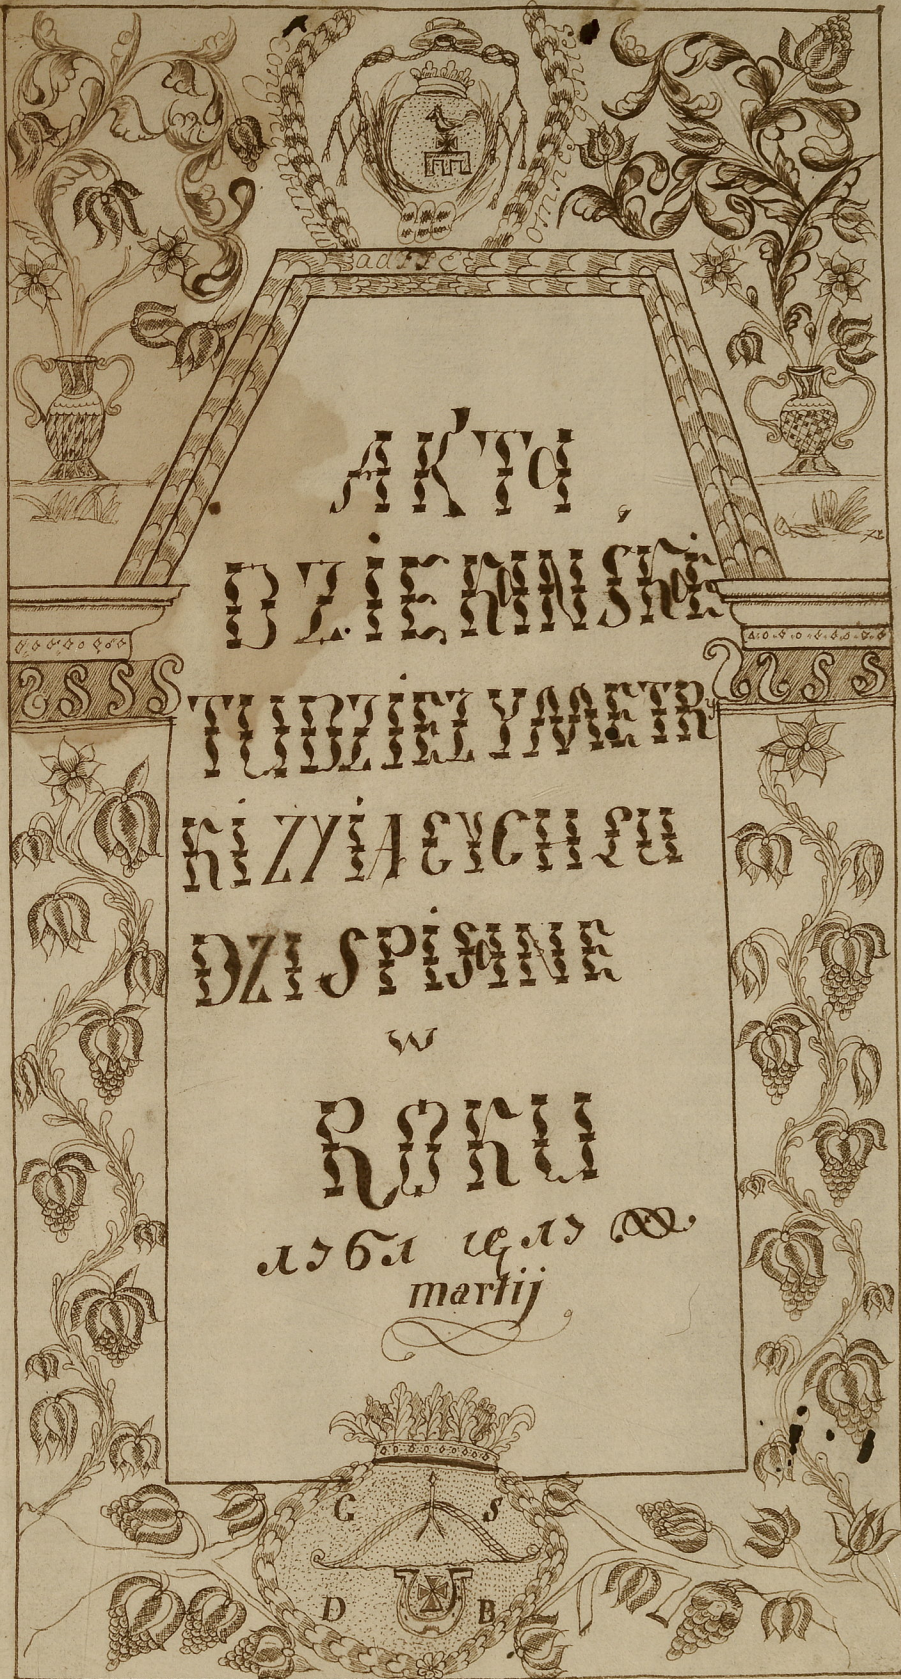 AKTa
DZIEKaNNSKIE
TUDZIEZ Y METRy
KI ZYIĄCYCH LU
DZI SPISaNNE
w
ROKU
1761
martij
G S
D B